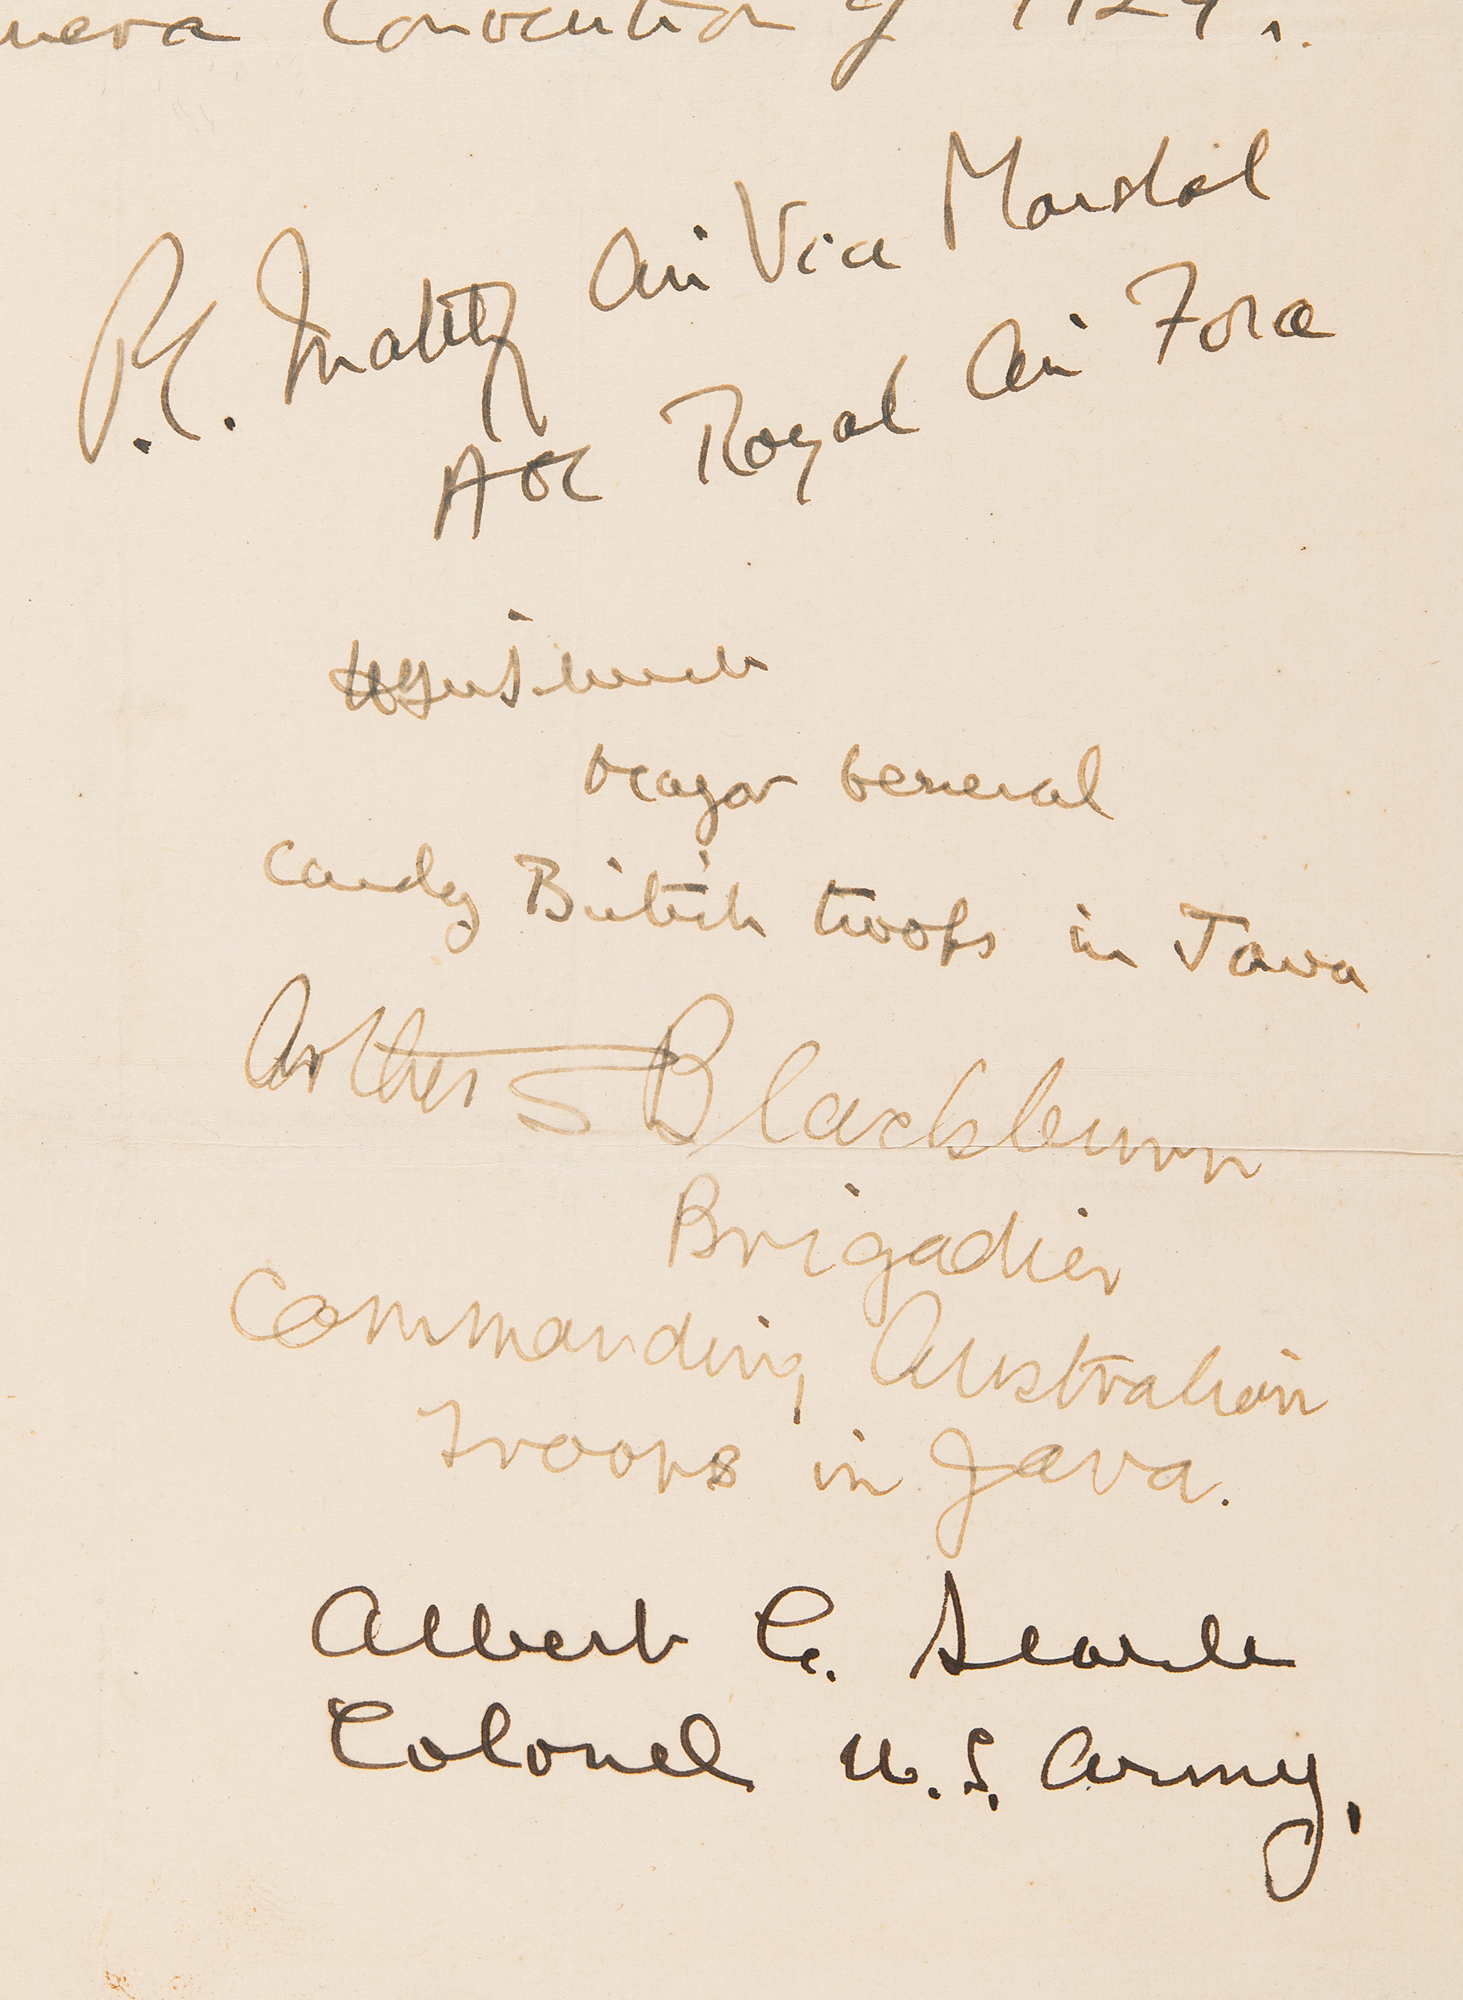 neva Convention of 1929.
P.C. Maltby Air Vice Marshal
AOC Royal Air Force
Major General
Comdg British troops in Java
Arthur S Blackburn
Brigadier
Commanding Australian
Troops in Java.
Albert C. Searle
Colonel U.S. Army.